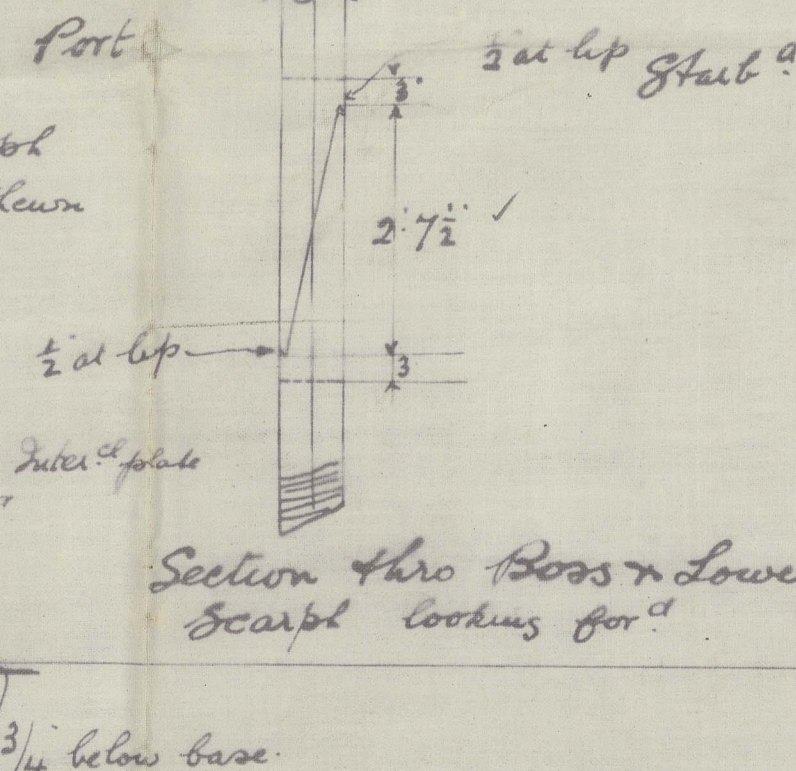 Port
½ at lip
Starbᵈ
3"
ph
hewn
2'.7½" ✓
½ at lip
3
Interᶜˡ plate
Section thro Boss & Lowe
Scarph looking forᵈ
3/4" below base.